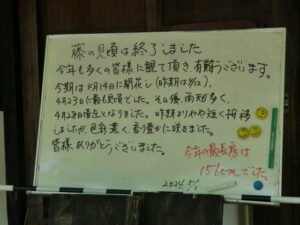 藤の見頃は終了しました
今年も多くの皆様に観て頂き有難うございます。
今期は4月14日に開花し(昨期は4/2)、
4月23日に最も見頃でした。その後、雨天多く、
4月28日頃迄となりました。昨期よりやや短く推移
しましたが、色彩濃く、香り豊かに咲きました。
皆様ありがとうございました。
今年の最長房は
156cmでした。
2024.5/1